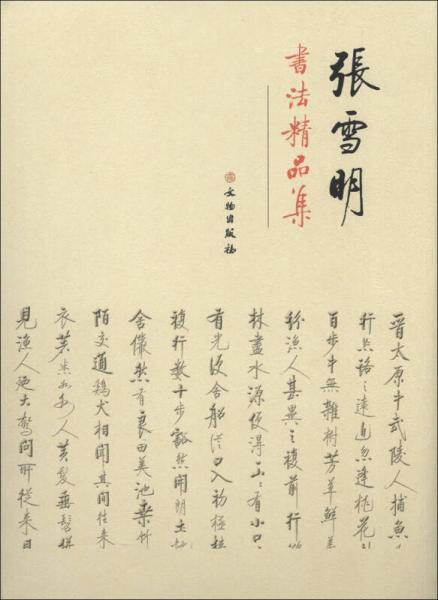 張雪明
書法精品集
文物出版社
晋太原中武陵人捕魚
行忘路之遠近忽逢桃花
百步中無雜樹芳草鮮
紛漁人甚異之復前行
林盡水源便得一山々有小口々
有光便舍船從口入初極
復行數十步豁然開朗土
舍儼然有良田美池桑竹
陌交通鷄犬相聞其間往來
衣著悉如外人黃髮垂髫
見漁人廼大驚問所從來